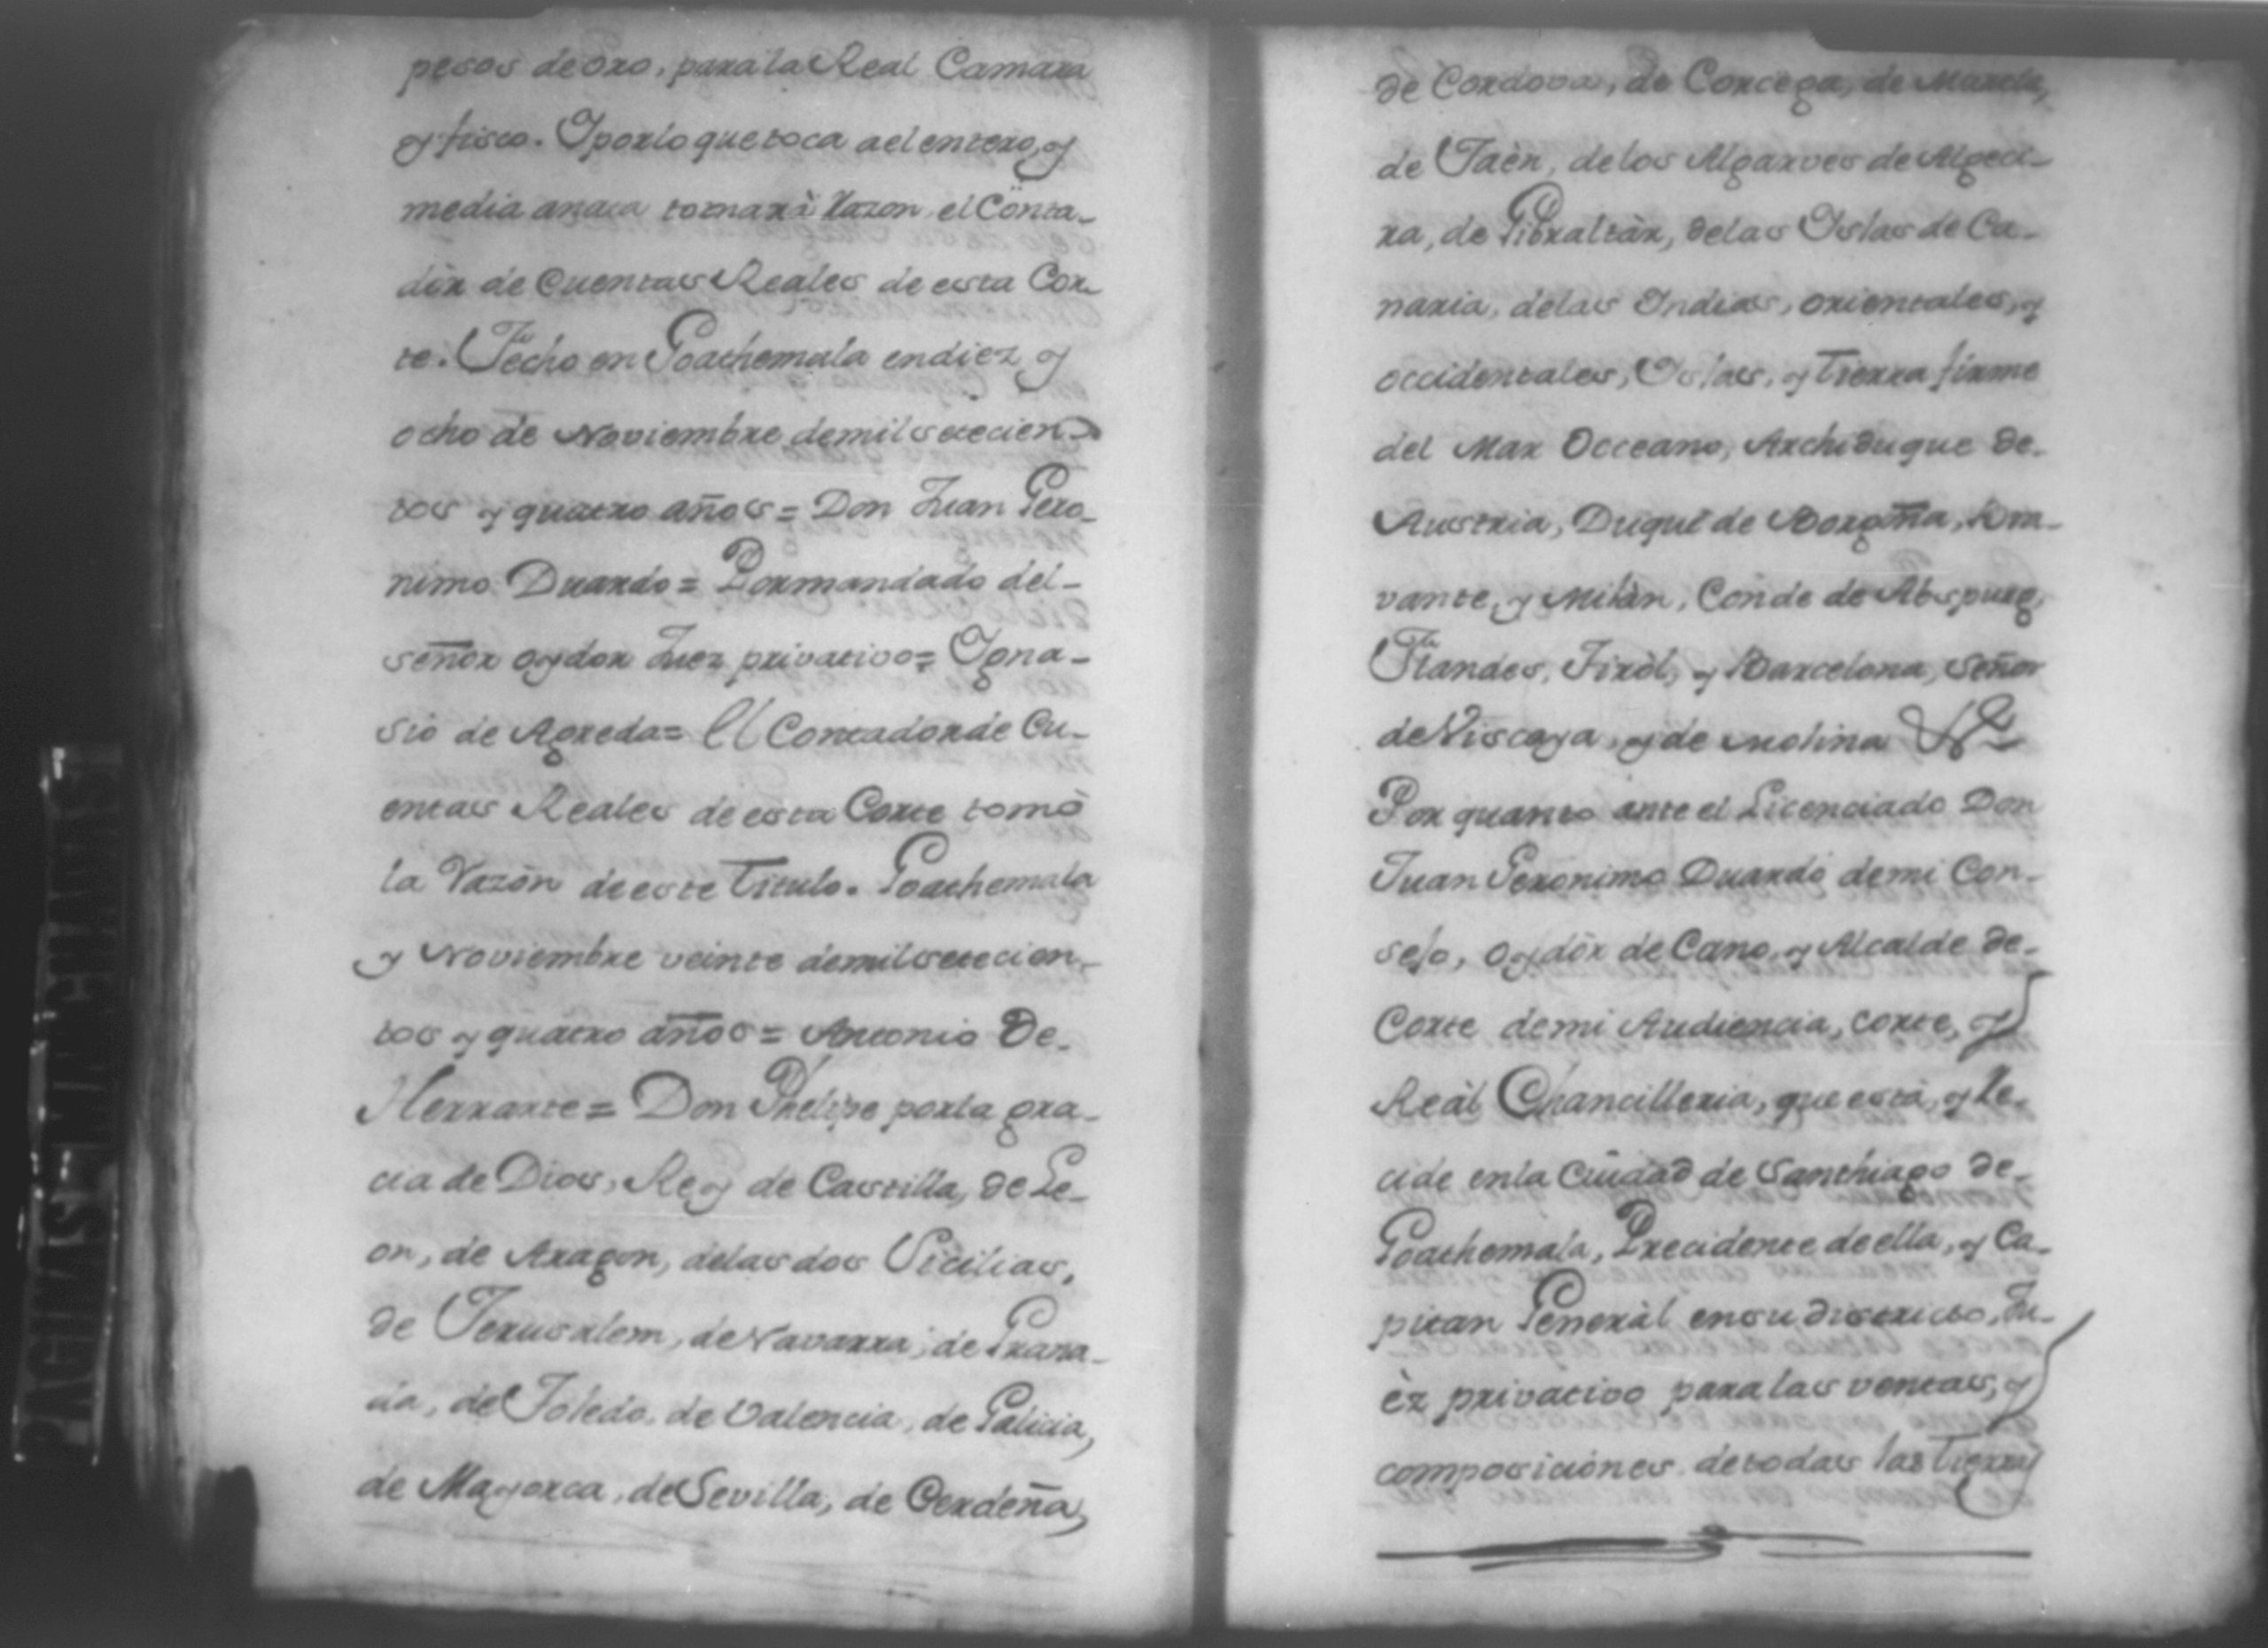 pesos de oro, para la Real Camara
y fisco. Y por lo que toca a el entero, y
media anata tomarà razon, el Conta-
dòr de Cuentas Reales de esta Cor-
te. Fecho en Goathemala en diez y
ocho de Noviembre de mil setecien-
tos y quatro años = Don Juan Gero-
nimo Duardo = Por mandado del-
señor oydor Juez privativo = Igna-
sio de Agreda = El Contador de Cu-
entas Reales de esta Corte tomò
la Razòn de este Titulo. Goathemala
y Noviembre veinte de mil setecien-
tos y quatro años = Antonio De-
Herrarte = Don Phelipe por la gra-
cia de Dios, Rey de Castilla, de Le-
on, de Aragon, de las dos Sicilias,
de Jerusalem, de Navarra, de Grana-
da, de Toledo, de Valencia, de Galicia,
de Mayorca, de Sevilla, de Cerdeña,
de Cordova, de Corcega, de Murcia,
de Jaèn, de los Algarves de Algeci-
ra, de Gibraltàr, de las Islas de Ca-
naria, de las Indias, orientales, y
occidentales, Islas, y Tierra firme
del Mar Occeano, Archiduque de-
Austria, Duque de Borgoña, Bra-
vante, y Milàn, Conde de Abspurg,
Flandes, Tiròl, y Barcelona, Señor
de Viscaya, y de Molina &c
Por quanto ante el Licenciado Don
Juan Geronimo Duardo de mi Con-
sejo, oydòr de Cano, y Alcalde de-
Corte de mi Audiencia, corte, y
Reàl Chancilleria, que està, y Re-
cide en la Ciudad de Santhiago de-
Goathemala, Precidente de ella, y Ca-
pitan Generàl en su districto, Ju-
èz privativo para las ventas, y
composiciónes de todas las tierras